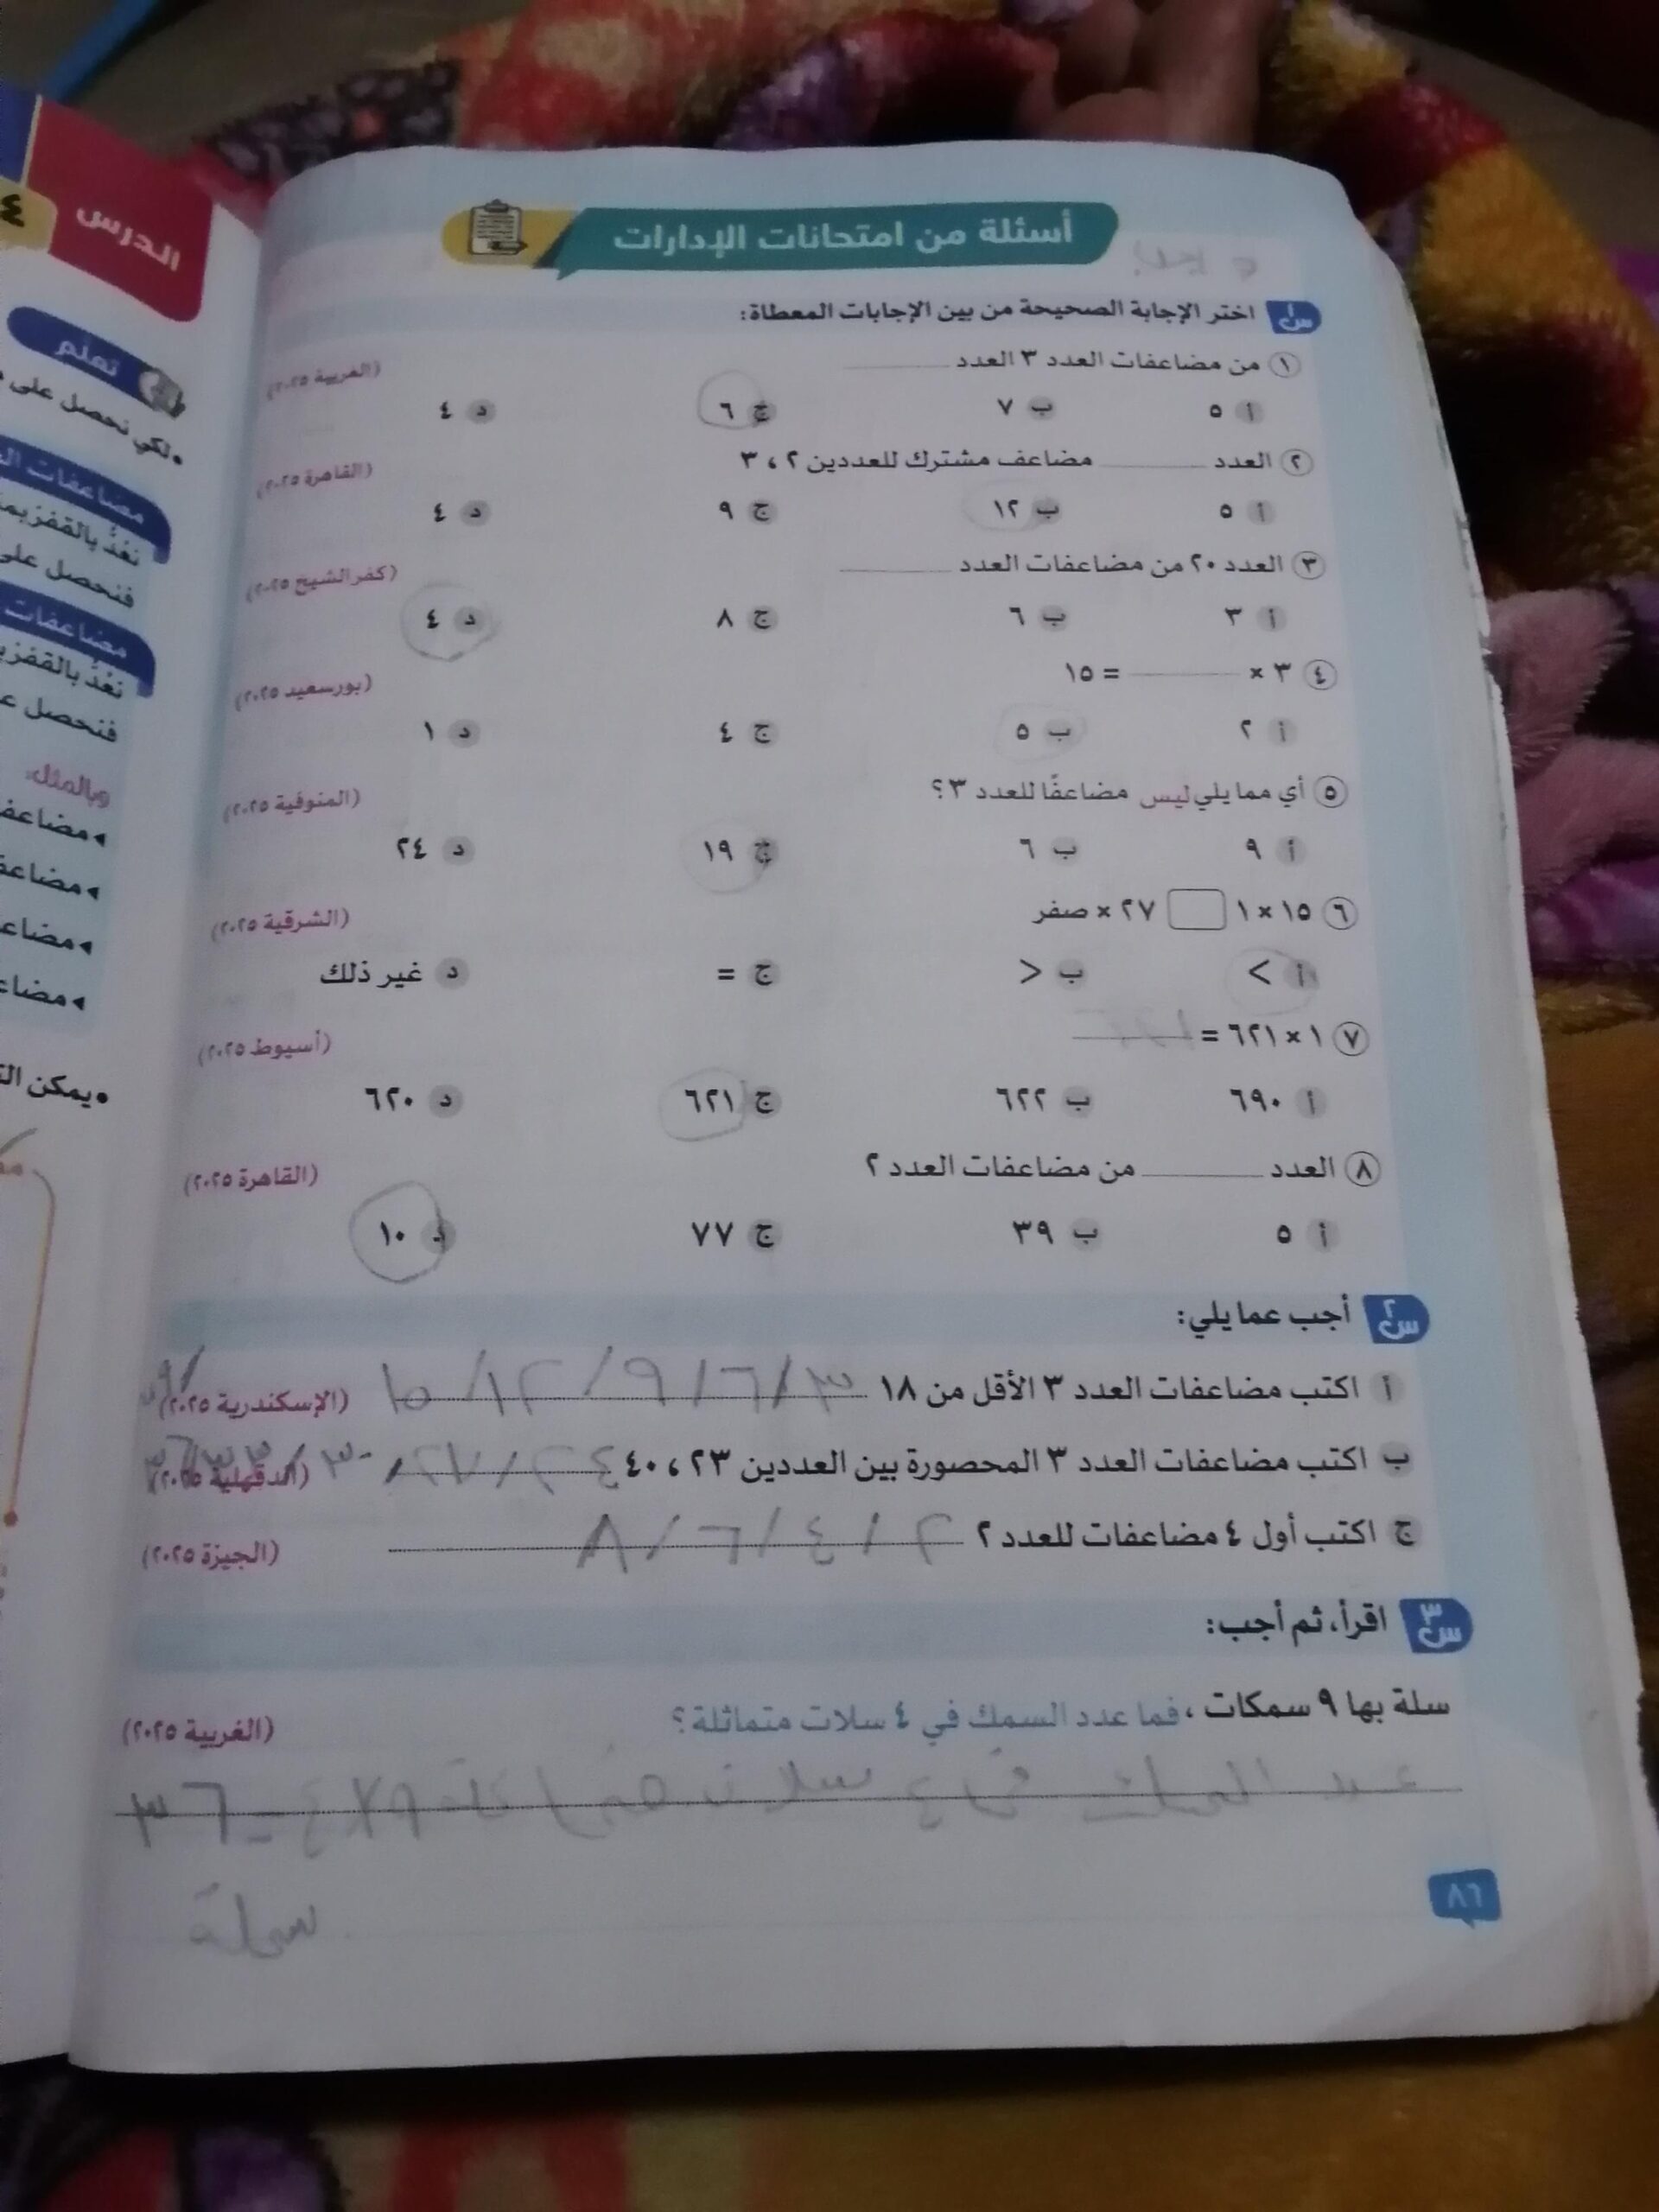 أسئلة من امتحانات الإدارات
س١ اختر الإجابة الصحيحة من بين الإجابات المعطاة:
١ من مضاعفات العدد ٣ العدد ______ (الغربية ٢٠٢٥)
أ ٥ ب ٧ ج ٦ د ٤
٢ العدد ______ مضاعف مشترك للعددين ٢ ، ٣ (القاهرة ٢٠٢٥)
أ ٥ ب ١٢ ج ٩ د ٤
٣ العدد ٢٠ من مضاعفات العدد ______ (كفر الشيخ ٢٠٢٥)
أ ٣ ب ٦ ج ٨ د ٤
٤ ٣ × ______ = ١٥ (بورسعيد ٢٠٢٥)
أ ٢ ب ٥ ج ٤ د ١
٥ أي مما يلي ليس مضاعفًا للعدد ٣ ؟ (المنوفية ٢٠٢٥)
أ ٩ ب ٦ ج ١٩ د ٢٤
٦ ١٥ × ١ □ ٢٧ × صفر (الشرقية ٢٠٢٥)
أ > ب < ج = د غير ذلك
٧ ١ × ٦٢١ = ______ (أسيوط ٢٠٢٥)
أ ٦٩٠ ب ٦٢٢ ج ٦٢١ د ٦٢٠
٨ العدد ______ من مضاعفات العدد ٢ (القاهرة ٢٠٢٥)
أ ٥ ب ٣٩ ج ٧٧ د ١٠
س٢ أجب عما يلي:
أ اكتب مضاعفات العدد ٣ الأقل من ١٨ ٣/٦/٩/١٢/١٥ (الإسكندرية ٢٠٢٥)
ب اكتب مضاعفات العدد ٣ المحصورة بين العددين ٢٣ ، ٤٠ (الدقهلية ٢٠٢٥)
ج اكتب أول ٤ مضاعفات للعدد ٢ ٢/٤/٦/٨ (الجيزة ٢٠٢٥)
س٣ اقرأ، ثم أجب:
سلة بها ٩ سمكات ، فما عدد السمك في ٤ سلات متماثلة ؟ (الغربية ٢٠٢٥)
عدد السمك في ٤ سلات ٩×٤=٣٦
سلة
٨٦
الدرس
٤
تعلم
•لكي نحصل على
نعُدُّ بالقفز بمق
فنحصل على
نعُدُّ بالقفز ب
وبالمثل:
•يمكن